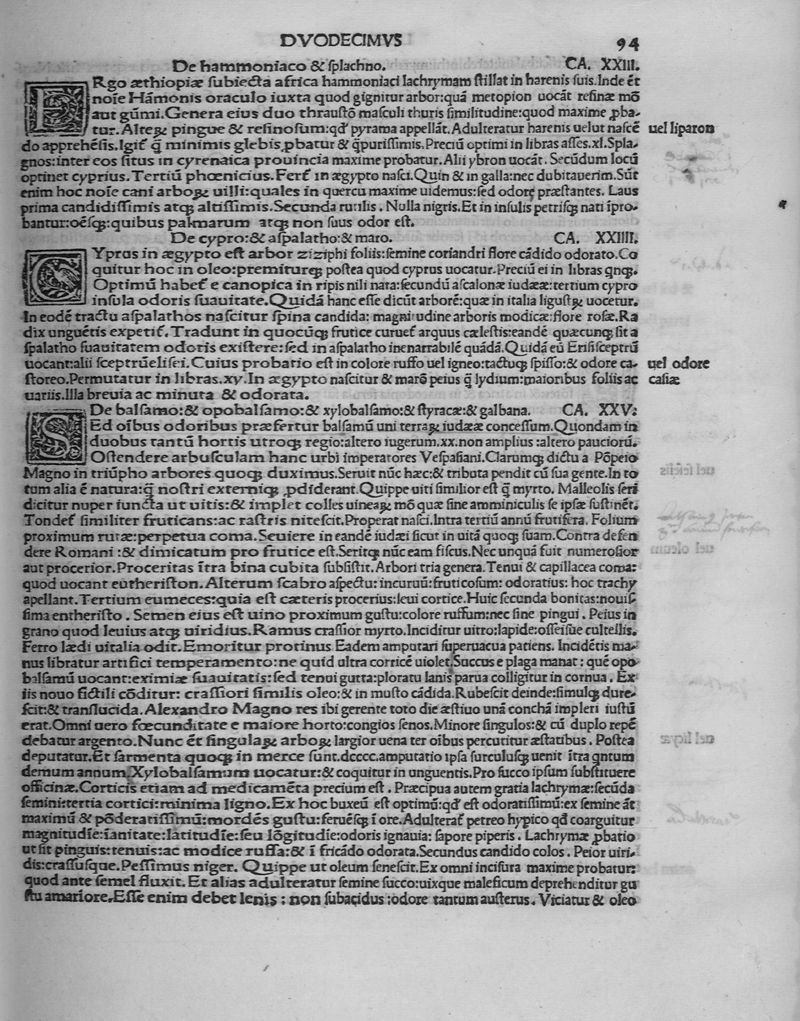 DVODECIMVS 94
De hammoniaco & ſplachno. CA. XXIII.
ERgo æthiopiæ ſubiecta africa hammoniaci lachrymam ſtillat in harenis ſuis. Inde ēt
noīe Hāmonis oraculo iuxta quod gignitur arbor: quā metopion uocāt reſinæ mō
aut gūmi. Genera eius duo thrauſtō maſculi thuris ſimilitudine: quod maxime ꝓba-
tur. Alteꝝ pingue & reſinoſum: qđ pyrama appellāt. Adulteratur harenis uelut naſcē uel liparon
do apprehēſis. Igiť ꝗ̄ minimis glebis ꝓbatur & ꝗ̄puriſſimis. Preciū optimi in libras aſſes. xl. Spla-
gnos: inter eos ſitus in cyrenaica prouincia maxime probatur. Alii ybron uocāt. Secūdum locū
optinet cyprius. Tertiū phœnicius. Ferť in ægypto naſci. Quin & in galla: nec dubitauerim. Sūt
enim hoc noīe cani arboꝝ uilli: quales in quercu maxime uidemus: ſed odorę præſtantes. Laus
prima candidiſſimis atqꝫ altiſſimis. Secunda rutilis. Nulla nigris. Et in inſulis petriſqꝫ nati īpro-
bantur: oēſqꝫ: quibus palmarum atqꝫ non ſuus odor eſt.
De cypro: & aſpalatho: & maro. CA. XXIIII.
CYprus in ægypto eſt arbor ziziphi foliis: ſemine coriandri flore cādido odorato. Co
quitur hoc in oleo: premiturqꝫ poſtea quod cyprus uocatur. Preciū ei in libras qnqꝫ.
Optimū habeť e canopica in ripis nili nata: ſecundū aſcalonæ iudææ: tertium cypro
inſula odoris ſuauitate. Quidā hanc eſſe dicūt arborē: quæ in italia liguſtꝝ uocetur.
In eodē tractu aſpalathos naſcitur ſpina candida: magnitudine arboris modicæ: flore roſæ. Ra
dix unguētis expetiť. Tradunt in quocūqꝫ frutice curueť arquus cæleſtis: eandē quæcunqꝫ ſit a
ſpalatho ſuauitatem odoris exiſtere: ſed in aſpalatho inenarrabilē quādā. Quidā eū Eriſiſceptrū
uocant: alii ſceptrūeliſei. Cuius probatio eſt in colore ruffo uel igneo: tactuqꝫ ſpiſſo: & odore ca- uel odore
ſtoreo. Permutatur in libras. xv. In ægypto naſcitur & marō peius ꝗ̄ lydium: maioribus foliis ac caſiæ
uariis. Illa breuia ac minuta & odorata.
De balſamo: & opobalſamo: & xylobalſamo: & ſtyracæ: & galbana. CA. XXV:
SEd oībus odoribus præfertur balſamū uni terraꝝ iudææ conceſſum. Quondam in
duobus tantū hortis utroqꝫ regio: altero iugerum. xx. non amplius : altero pauciorū.
Oſtendere arbuſculam hanc urbi imperatores Veſpaſiani. Clarumqꝫ dictu a Pōpeio
Magno in triūpho arbores quoqꝫ duximus. Seruit nūc hæc: & tributa pendit cū ſua gente. In to
tum alia ē natura: ꝗ̄ noſtri externiqꝫ ꝓdiderant. Quippe uiti ſimilior eſt ꝗ̄ myrto. Malleolis ſeri
dicitur nuper iuncta ut uitis: & implet colles uineaꝝ mō quæ ſine amminiculis ſe ipſæ ſuſtinēt.
Tondeť ſimiliter fruticans: ac raſtris niteſcit. Properat naſci. Intra tertiū annū frutifera. Folium
proximum rutæ: perpetua coma. Seuiere in eandē iudæi ſicut in uitā quoqꝫ ſuam. Contra defen
dere Romani : & dimicatum pro frutice eſt. Seritqꝫ nūc eam fiſcus. Nec unquā fuit numeroſior
aut procerior. Proceritas ītra bina cubita ſubſiſtit. Arbori tria genera. Tenui & capillacea coma:
quod uocant eutheriſton. Alterum ſcabro aſpectu: incuruū: fruticoſum: odoratius: hoc trachy
apellant. Tertium eumeces: quia eſt cæteris procerius: leui cortice. Huic ſecunda bonitas: nouiſ
ſima entheriſto. Semen eius eſt uino proximum guſtu: colore ruffum: nec ſine pingui. Peius in
grano quod leuius atqꝫ uiridius. Ramus craſſior myrto. Inciditur uitro: lapide: oſſeiſue cultellis.
Ferro lædi uitalia odit. Emoritur protinus Eadem amputari ſuperuacua patiens. Incidētis ma-
nus libratur artifici temperamento: ne quid ultra corticē uiolet. Succus e plaga manat : quē opo
balſamū uocant: eximiæ ſuauitatis: ſed tenui gutta: ploratu lanis parua colligitur in cornua. Ex
iis nouo fictili cōditur: craſſiori ſimilis oleo: & in muſto cādida. Rubeſcit deinde: ſimulqꝫ dure-
ſcit: & tranſlucida. Alexandro Magno res ibi gerente toto die æſtiuo unā conchā impleri iuſtū
erat. Omni uero fœcunditate e maiore horto: congios ſenos. Minore ſingulos: & cū duplo repē
debatur argento. Nunc ēt ſingulaꝝ arboꝝ largior uena ter oībus percutitur æſtatibus. Poſtea
deputatur. Et ſarmenta quoqꝫ in merce ſunt. dcccc. amputatio ipſa ſurculuſqꝫ uenit ītra qntum
demum annum. Xylobalſamum uocatur: & coquitur in unguentis. Pro ſucco ipſum ſubſtituere
officinæ. Corticis etiam ad medicamēta precium eſt. Præcipua autem gratia lachrymæ: ſecūda
ſemini: tertia cortici: minima ligno. Ex hoc buxeū eſt optimū: qđ eſt odoratiſſimū: ex ſemine āt
maximū & pōderatiſſimū: mordēs guſtu: ferueſqꝫ ī ore. Adulterať petreo hypico qđ coarguitur
magnitudīe: īanitate: latitudīe: ſeu lōgitudīe: odoris ignauia: ſapore piperis. Lachrymæ ꝓbatio
ut ſit pinguis: tenuis: ac modice ruffa: & ī fricādo odorata. Secundus candido colos. Peior uiri-
dis: craſſuſque. Peſſimus niger. Quippe ut oleum ſeneſcit. Ex omni inciſura maxime probatur:
quod ante ſemel fluxit. Et alias adulteratur ſemine ſucco: uixque maleficum deprehenditur gu
ſtu amariore. Eſſe enim debet lenis : non ſubacidus : odore tantum auſterus. Viciatur & oleo